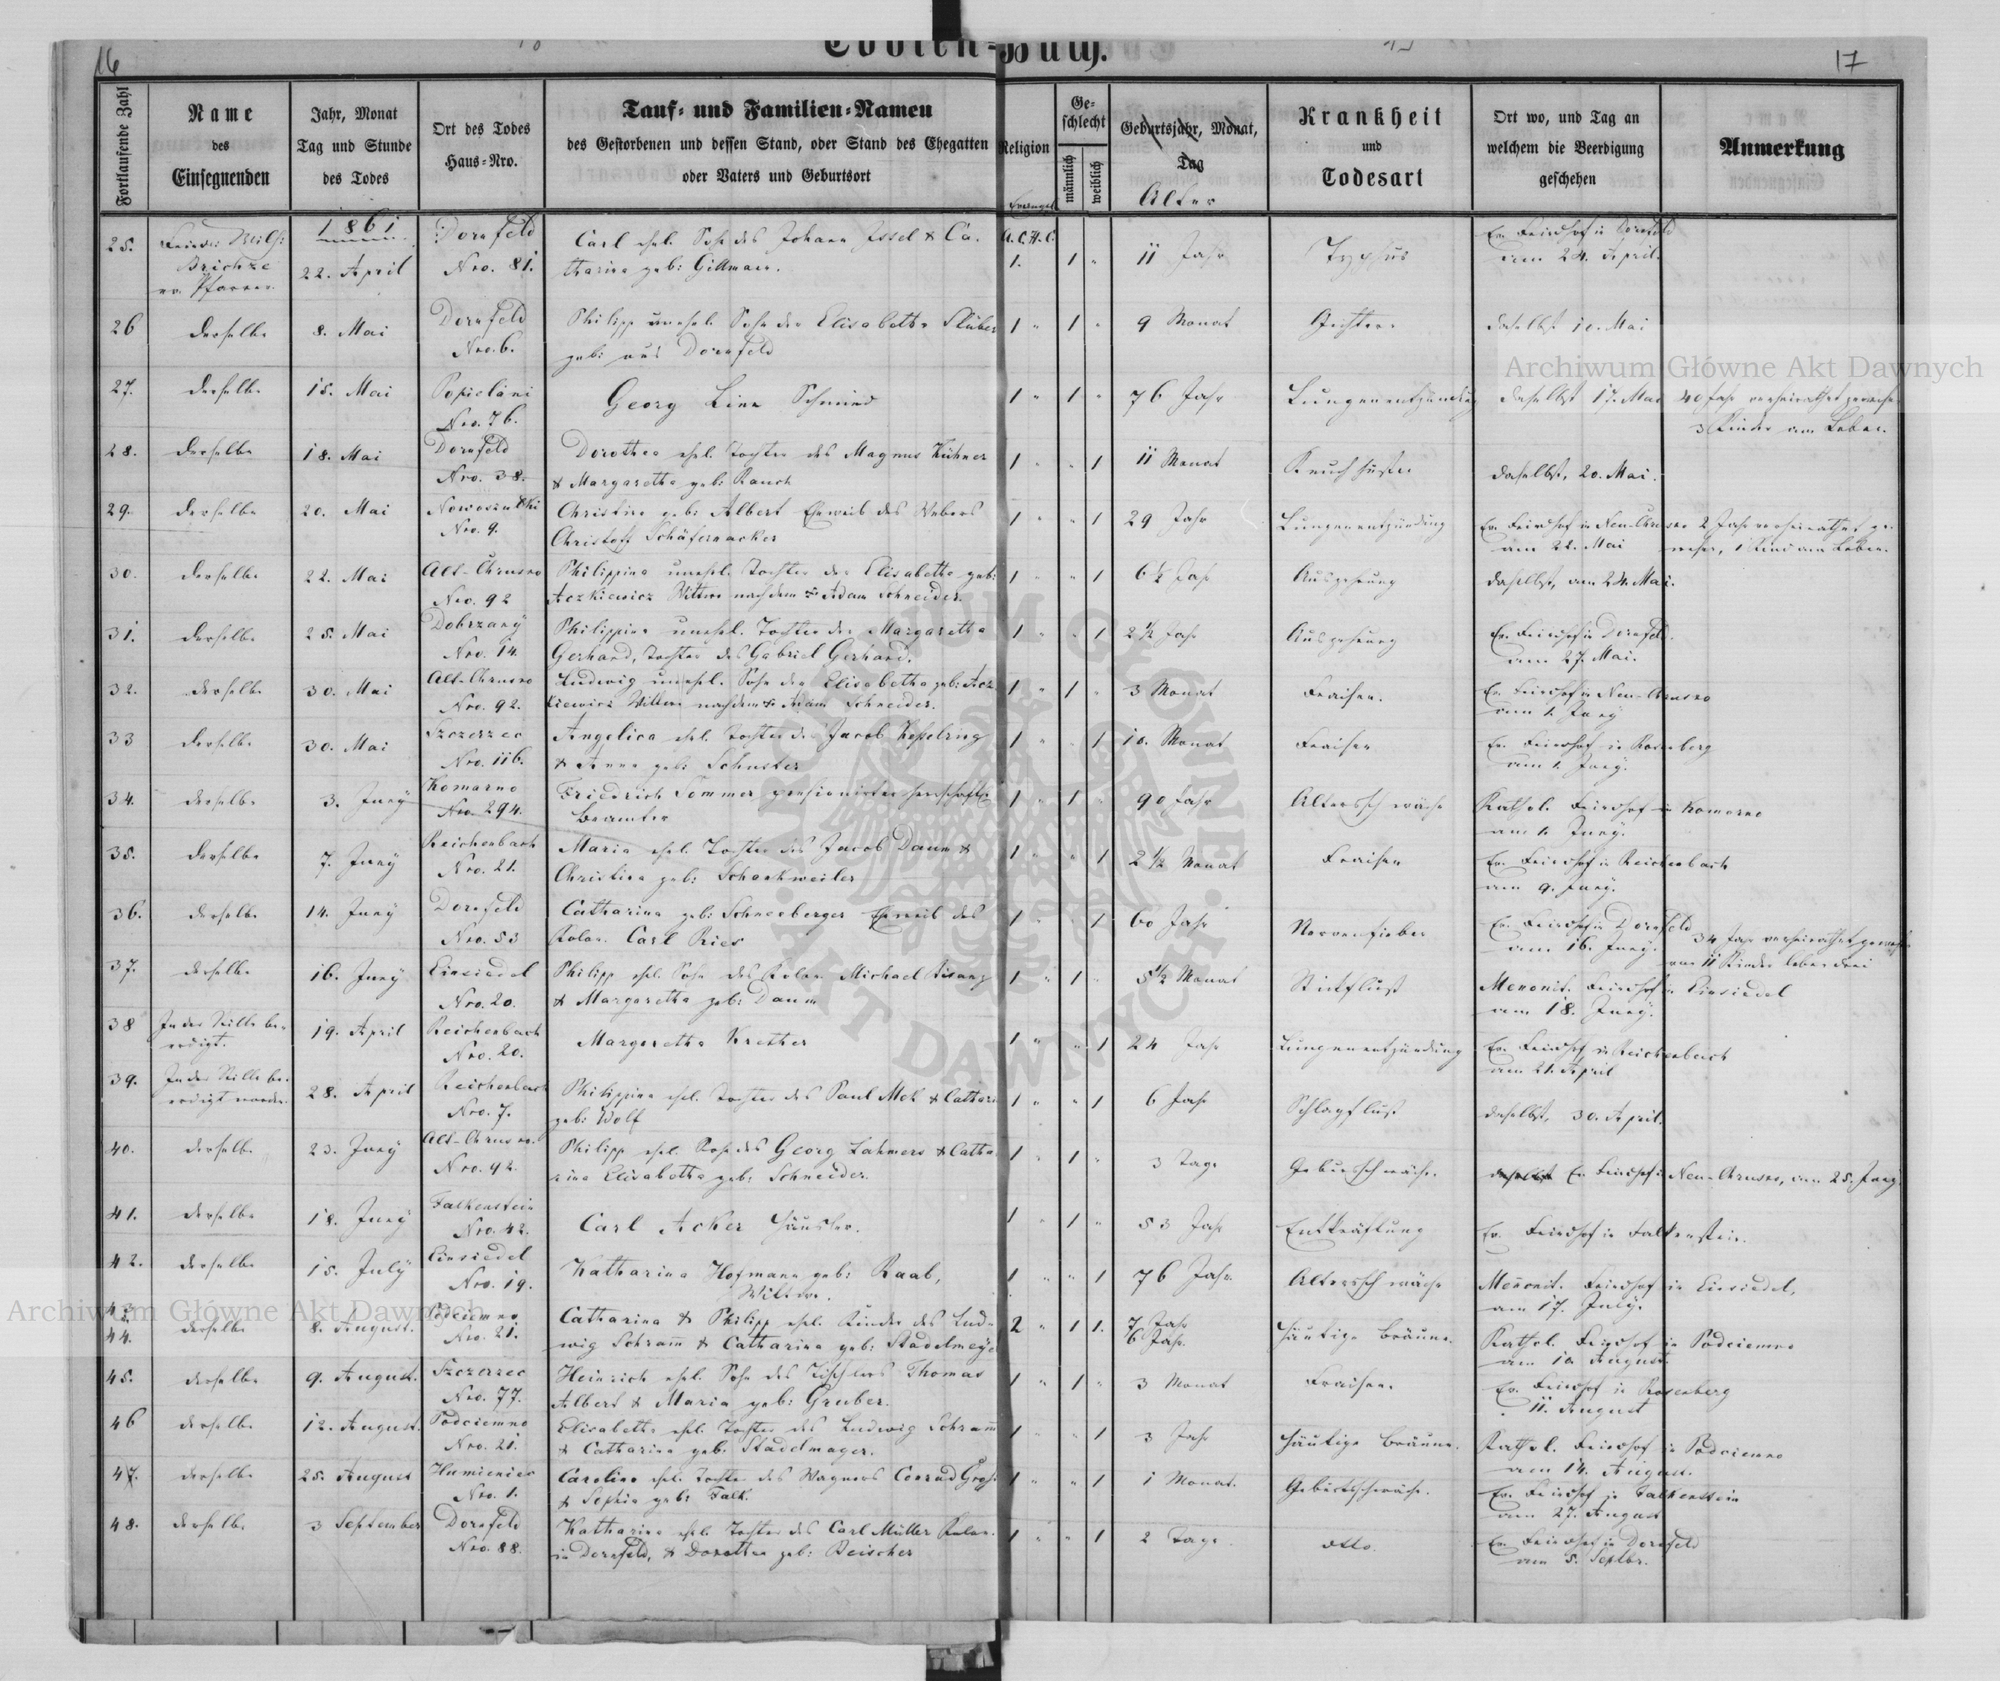 16
Todten-Buch.
17
Fortlaufende Zahl
Name
des
Einsegnenden
Jahr, Monat
Tag und Stunde
des Todes
Ort des Todes
Haus-Nro.
Tauf- und Familien-Namen
des Gestorbenen und dessen Stand, oder Stand des Ehegatten
oder Vaters und Geburtsort
Religion
Ge-
schlecht
männlich
weiblich
Geburtsjahr, Monat,
Tag
Alter
Krankheit
und
Todesart
Ort wo, und Tag an
welchem die Beerdigung
geschehen
Anmerkung
1861
A. C. H. C.
25.
22. April
Dornfeld
Nro. 81.
Carl ehel. Sohn des Johann Issel & Ca-
tharina geb: Gillmann.
1. 1 "
11 Jahr
Typhus
Ev. Friedhof in Dornfeld
am 24. April.
ev. Pfarrer
26
derselbe
8. Mai
Dornfeld
Nro. 6.
Philipp unehel. Sohn der Elisabetha
geb: aus Dornfeld
1 " 1 "
9 Monat
daselbst 10. Mai
27.
derselbe
15. Mai
Nro. 76.
Georg Schmied
1 " 1 "
76 Jahr
Lungenentzündung
daselbst 17. Mai
40 Jahr verheirathet gewesen
3 Kinder am Leben.
28.
derselbe
18. Mai
Dornfeld
Nro. 38.
Dorothea ehel. Tochter des Magnus Kühner
& Margaretha geb: Rauch
1 " " 1
11 Monat
Keuchhusten
daselbst, 20. Mai.
29.
derselbe
20. Mai
Nro. 9.
Christine geb: Albert Eheweib des Webers
Christoff Schäfernacker
1 " " 1
29 Jahr
Lungenentzündung
Ev. Friedhof in Neu-Chrusno
am 22. Mai
2 Jahr verheirathet ge-
wesen, 1 Kind am Leben.
30.
derselbe
22. Mai
Alt-Chrusno
Nro. 92
Philippine unehel. Tochter der Elisabetha geb:
Aczkiewicz Wittwe nach dem Adam Schneider.
1 " " 1
6 1/2 Jahr
Auszehrung
daselbst, am 24. Mai.
31.
derselbe
25. Mai
Dobrzany
Nro. 14.
Philippine unehel. Tochter der Margaretha
Gerhard, Tochter des Gabriel Gerhard.
1 " " 1
2 1/2 Jahr
Auszehrung
Ev. Friedhof in Dornfeld.
am 27. Mai.
32.
derselbe
30. Mai
Alt-Chrusno
Nro. 92.
Ludwig unehel. Sohn der Elisabetha geb: Acz-
kiewicz Wittwe nach dem Adam Schneider.
1 " 1 "
3 Monat
Fraisen.
Ev. Friedhof in Neu-Chrusno
am 1. Juny
33
derselbe
30. Mai
Szczerzec
Nro. 116.
Angelica ehel. Tochter des Jacob Kesselring
& Anna geb: Schuster
1 " " 1
10. Monat
Fraisen
Ev. Friedhof in Rosenberg
am 1. Juny.
34.
derselbe
3. Juny
Komarno
Nro. 294.
Friedrich Sommer pensionirter herrschaftl.
Beamter
1 " 1 "
90 Jahr
Altersschwäche
Kathol. Friedhof in Komarno
am 1. Juny.
35.
derselbe
7. Juny
Reichenbach
Nro. 21.
Maria ehel. Tochter des Jacob Daum &
Christina geb: Schockweiler
1 " " 1
2 1/2 Monat
Fraisen
Ev. Friedhof in Reichenbach
am 9. Juny.
36.
derselbe
14. Juny
Dornfeld
Nro. 53
Catharina geb: Schneeberger Eheweib des
Kolon. Carl Ries
1 " " 1
60 Jahr
Nervenfieber
Ev. Friedhof in Dornfeld
am 16. Juny.
34 Jahr verheirathet gewesen
von 11 Kinder leben drei
37.
derselbe
16. Juny
Einsiedel
Nro. 20.
Philipp ehel. Sohn des Kolon. Michael
& Margaretha geb: Daum
1 " 1 "
5 1/2 Monat
Stickfluß
Menonit. Friedhof in Einsiedel
am 18. Juny.
38
In der Stille be-
erdigt.
19. April
Reichenbach
Nro. 20.
Margaretha Krether
1 " " 1
24 Jahr
Lungenentzündung
Ev. Friedhof in Reichenbach
am 21. April
39.
In der Stille be-
erdigt worden.
28. April
Reichenbach
Nro. 7.
Philippine ehel. Tochter des Paul Mok & Cathari
geb: Wolf
1 " " 1
6 Jahr
Schlagfluß
daselbst, 30. April.
40.
derselbe
23. Juny
Alt-Chrusno.
Nro. 92.
Philipp ehel. Sohn des Georg Lahmers & Catha-
rina Elisabetha geb: Schneider.
1 " 1 "
3 Tage
Geburtsschwäche.
daselbst Ev. Friedhof in Neu-Chrusno, am 25. Juny.
41.
derselbe
18. Juny
Falkenstein
Nro. 42.
Carl Acker Häusler.
1 " 1 "
53 Jahr
Entkräftung
Ev. Friedhof in Falkenstein.
42.
derselbe
15. July
Einsiedel
Nro. 19.
Katharina Hofmann geb: Raab,
Wittwe.
1 " " 1
76 Jahr.
Altersschwäche
Menonit. Friedhof in Einsiedel,
am 17. July.
43.
44.
derselbe
8. August.
Podciemno
Nro. 21.
Catharina & Philipp ehel. Kinder des Lud-
wig Schram & Catharina geb: Stadelmeye
2 " 1 1.
7 Jahr
6 Jahr.
Häutige Bräune.
Kathol. Friedhof in Podciemno
am 10 August.
45.
derselbe
9. August.
Szczerzec
Nro. 77.
Heinrich ehel. Sohn des Tischlers Thomas
Albert & Maria geb: Gruber.
1 " 1 "
3 Monat
Fraisen.
Ev. Friedhof in Rosenberg
11. August
46
derselbe
12. August.
Podciemno
Nro. 21.
Elisabetha ehel. Tochter des Ludwig Schram
& Catharina geb. Stadelmayer.
1 " " 1
3 Jahr
Häutige Bräune.
Kathol. Friedhof in Podciemno
am 14. August.
47.
derselbe
25. August
Humieniec
Nro. 1.
Caroline ehel. Tochter des Wagners Conrad Groß
& Sophia geb: Falk.
1 " " 1
1 Monat.
Geburtsschwäche.
Ev. Friedhof in Falkenstein
am 27. August
48.
derselbe
3 September
Dornfeld
Nro. 88.
Katharina ehel. Tochter des Carl Müller Kolon.
in Dornfeld, & Dorothea geb: Reischer
1 " " 1
2 Tage
detto.
Ev. Friedhof in Dornfeld
am 5. Septbr.
Archiwum Główne Akt Dawnych
Archiwum Główne Akt Dawnych
ARCHIWUM GŁÓWNE AKT DAWNYCH